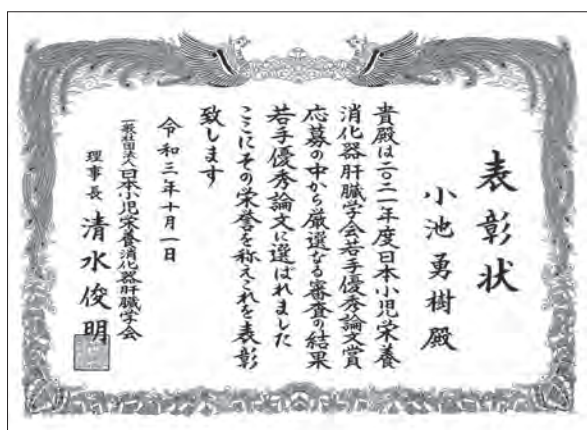 表彰状
小池勇樹殿
貴殿は二〇二一年度日本小児栄養
消化器肝臓学会若手優秀論文賞
応募の中から厳選なる審査の結果
若手優秀論文に選ばれました
ここにその栄誉を称えこれを表彰
致します
令和三年十月一日
一般社団法人日本小児栄養消化器肝臓学会
理事長 清水俊明